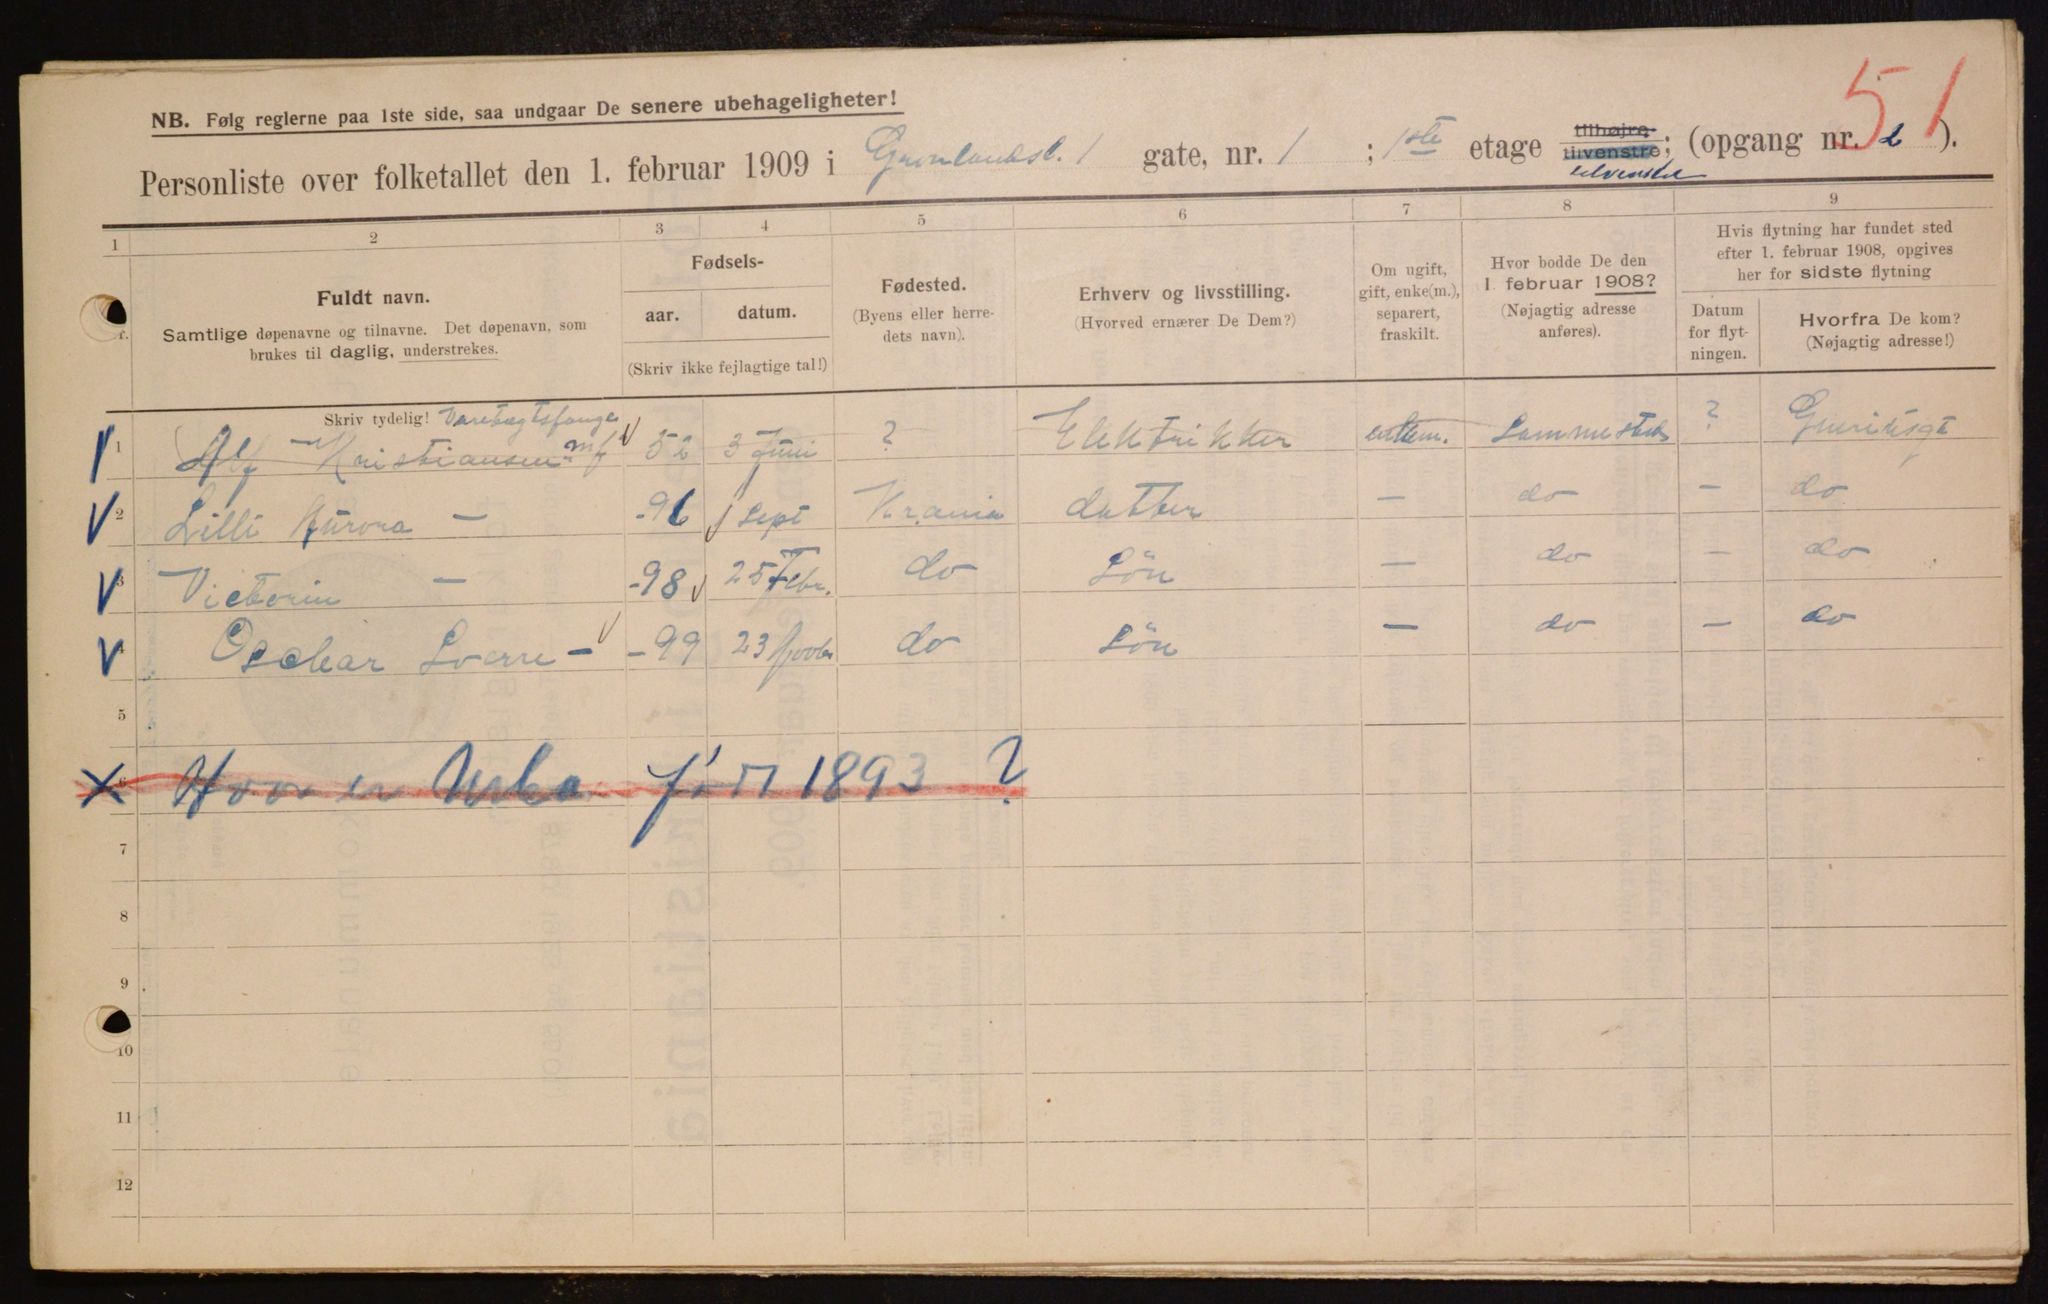 51
NB. Følg reglerne paa 1ste side, saa undgaar De senere ubehageligheter!
Personliste over folketallet den 1. februar 1909 i Grønlandsl. 1 gate, nr. 1 ; 1ste etage tilhøjre tilvenstre; (opgang nr. 2 ).
tilvenstre
1 2 3 4 5 6 7 8 9
Fuldt navn.
Samtlige døpenavne og tilnavne. Det døpenavn, som
brukes til daglig, understrekes.
Fødsels-
aar. datum.
(Skriv ikke fejlagtige tal!)
Fødested.
(Byens eller herre-
dets navn).
Erhverv og livsstilling.
(Hvorved ernærer De Dem?)
Om ugift,
gift, enke(m.),
separert,
fraskilt.
Hvor bodde De den
1. februar 1908?
(Nøjagtig adresse
anføres).
Hvis flytning har fundet sted
efter 1. februar 1908, opgives
her for sidste flytning
Datum
for flyt-
ningen.
Hvorfra De kom?
(Nøjagtig adresse!)
Skriv tydelig! Varetægtsfange
1 Alf Kristiansen mf 52 3 Juni ? Elektrikker enkem. Sammested ?
2 Lilli Aurora — -96 1 Sept Krania datter — do — do
3 Victorin — -98 25 Febr. do Sön — do — do
Oschar Sverre — -99 23 do Sön — do — do
5
6 Hvor er født 1893 ?
7
8
9
10
11
12